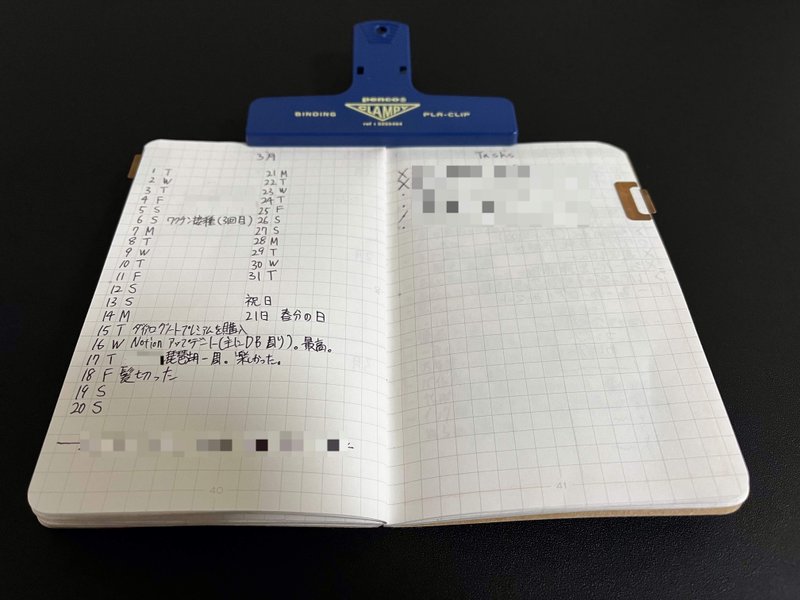 penco®
BINDING
CLAMPY
PLA-CLIP
3月
1 T
2 W
3 T
4 F
5 S
6 S ワクチン接種(3回目)
7 M
8 T
9 W
10 T
11 F
12 S
13 S
14 M
15 T プレミアムを購入
16 W Notion アップデート(主にDB周り)。最高。
17 T 琵琶湖一周。楽しかった。
18 F 髪切った
19 S
20 S
21 M
22 T
23 W
24 T
25 F
26 S
27 S
28 M
29 T
30 W
31 T
祝日
21日 春分の日
40
Tasks
41